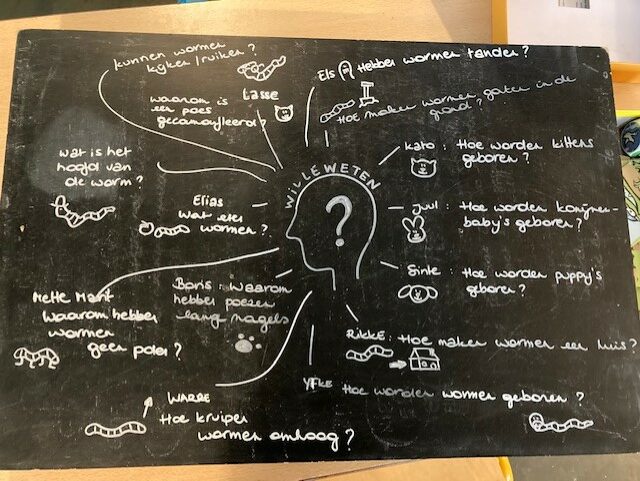 kunnen wormen
kijken / ruiken ?
Lasse
waarom is
een poes
gecamoufleerd?
Els Hebben wormen tanden ?
Hoe maken wormen gaten in de
grond ?
Kato : Hoe worden kittens
geboren ?
wat is het
hoofd van
de worm ?
WILLEWETEN
?
Elias
wat eten
wormen ?
Juul : Hoe worden konijnen-
baby's geboren ?
Sinte : Hoe worden puppy's
geboren ?
Boris : waarom
hebben poezen
lang nagels
Mette Marit
waarom hebben
wormen
geen poten ?
RIKKE : Hoe maken wormen een huis ?
YFKE Hoe worden wormen geboren ?
WARRE
Hoe kruipen
wormen omhoog ?